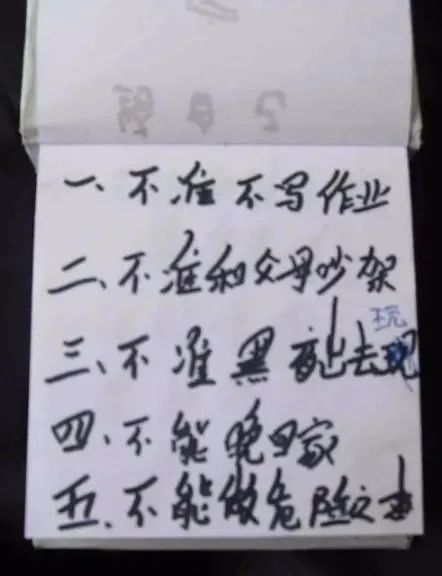 一、不准不写作业
二、不准和父母吵架
三、不准黑夜出去玩
四、不能晚回家
五、不能做危险之事